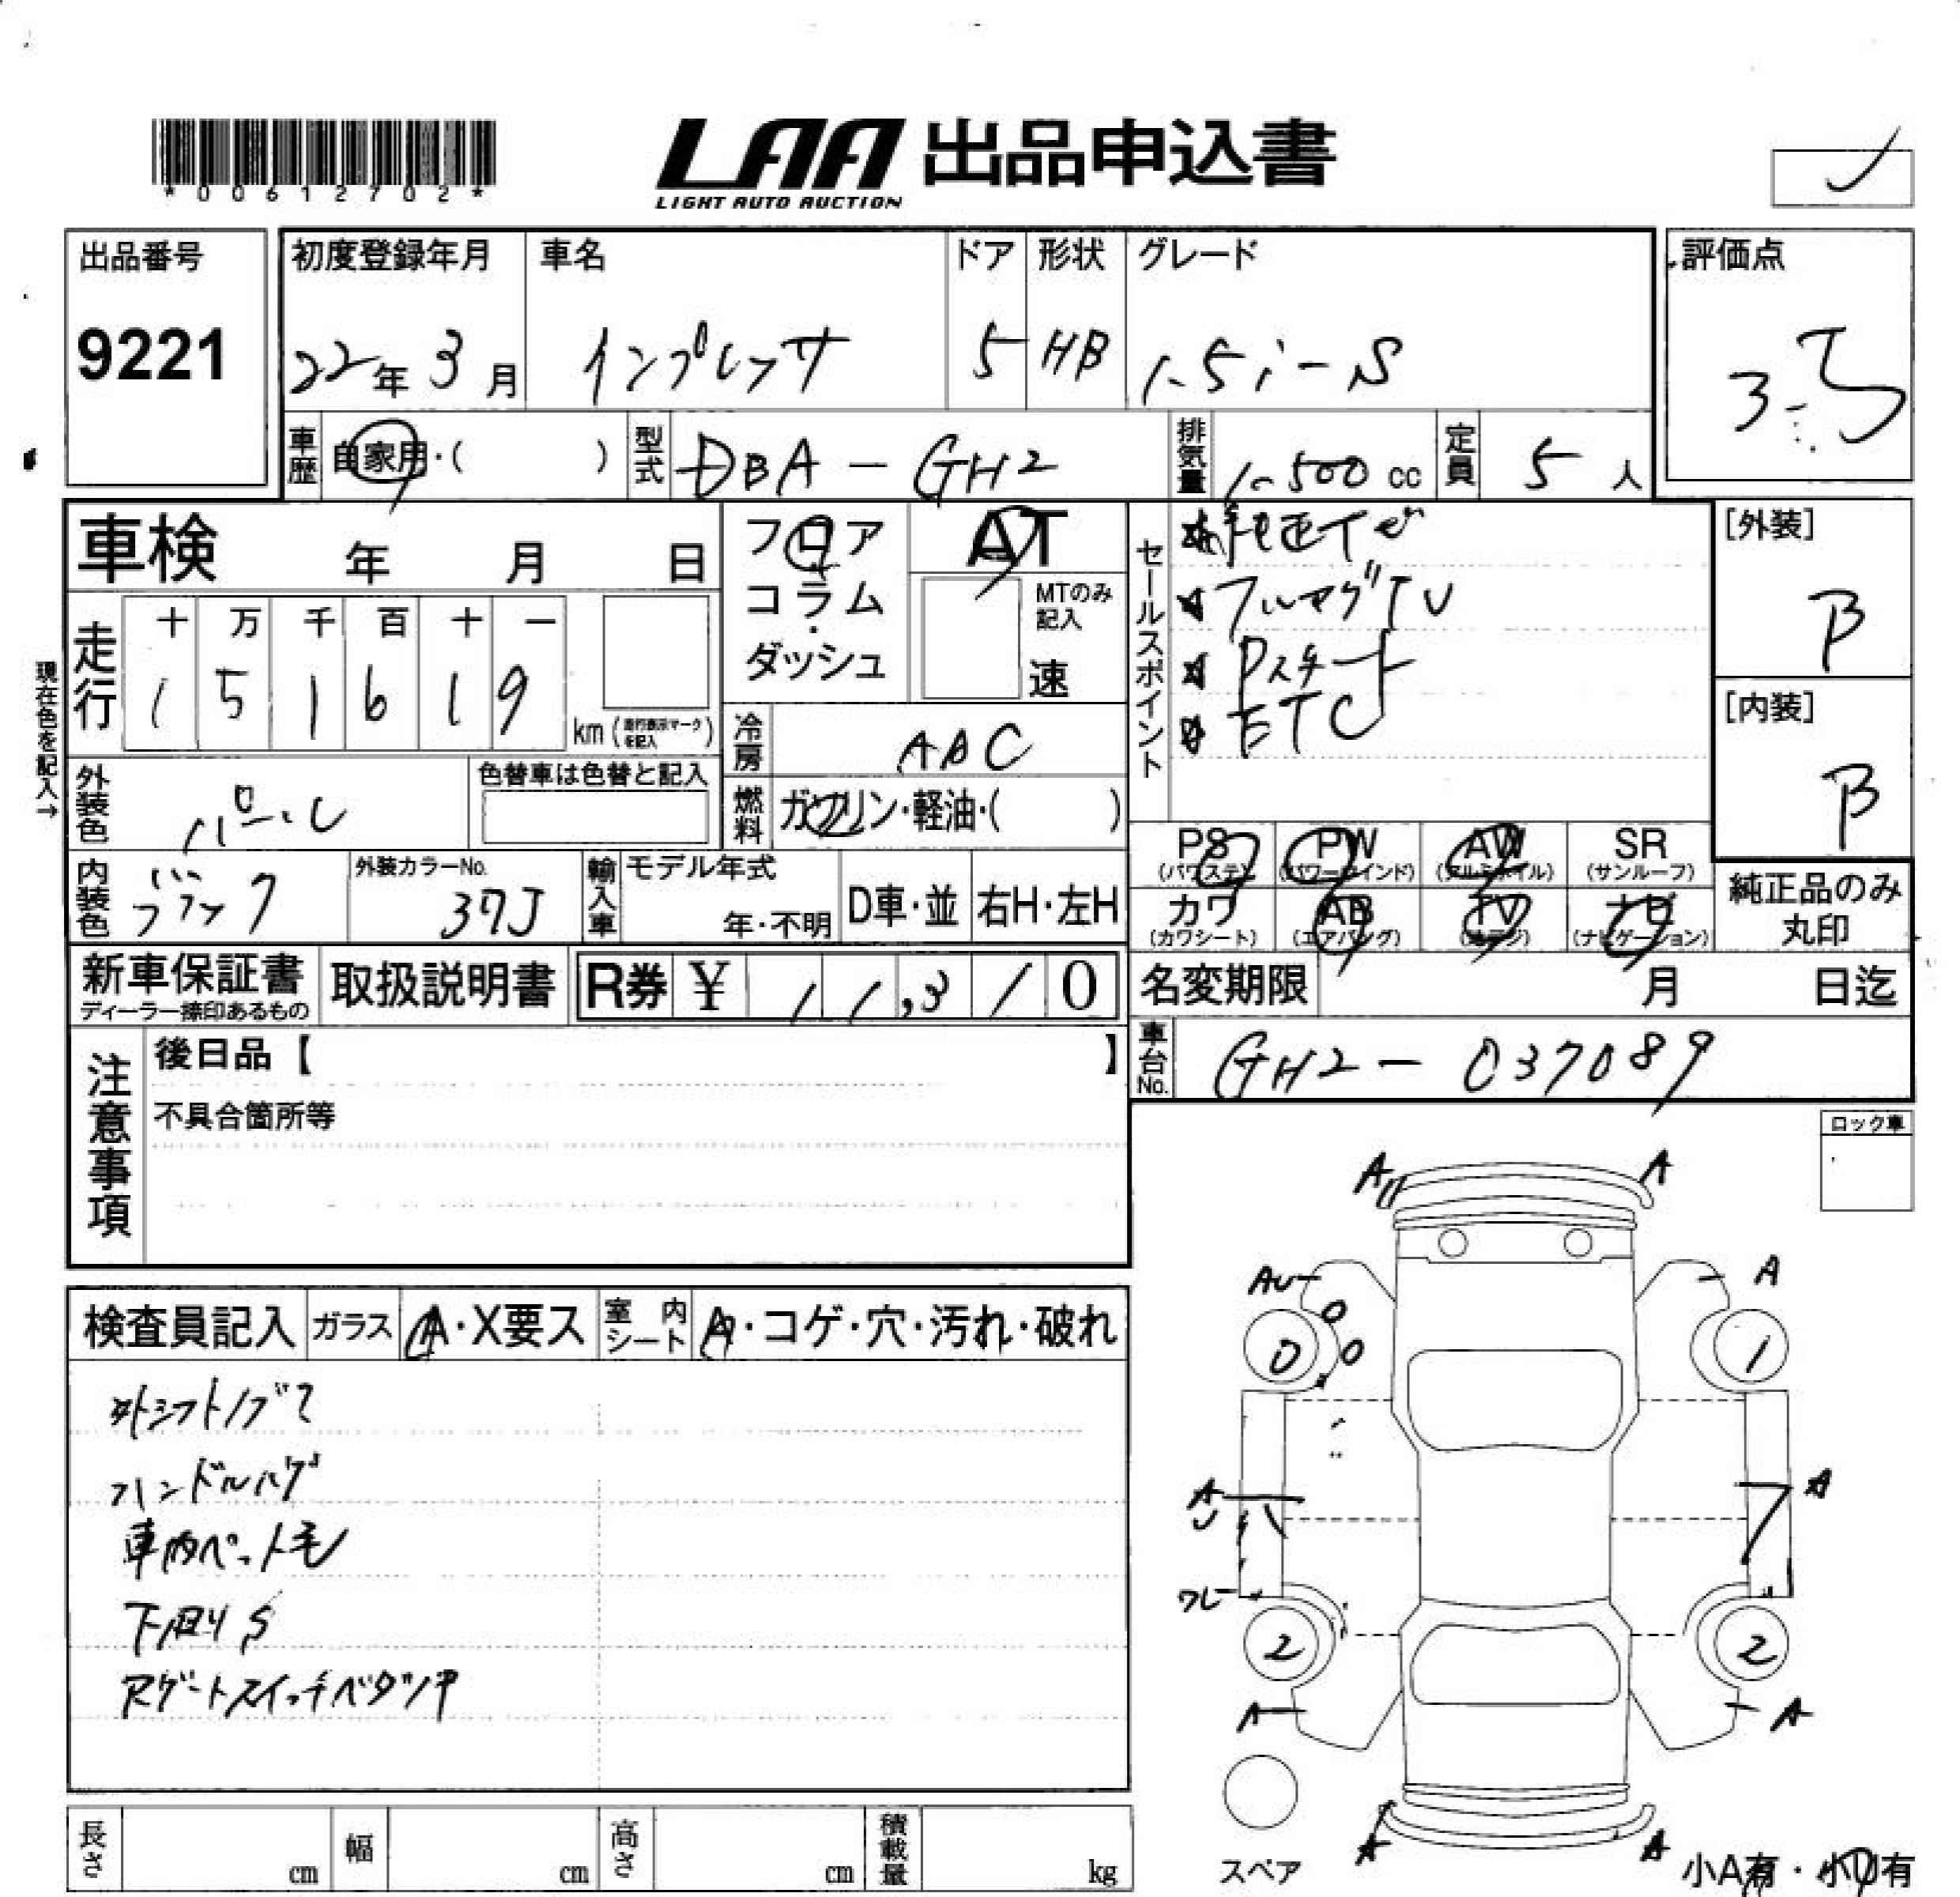 *00612702*
LAA 出品申込書
LIGHT AUTO AUCTION
出品番号
9221
初度登録年月
22年 3月
車名
インプレッサ
ドア
5
形状
HB
グレード
1.5i-S
評価点
3.5
車歴 自家用・( )
型式 DBA-GH2
排気量 1500 cc
定員 5 人
車検 年 月 日
フロア
コラム
・
ダッシュ
AT
MTのみ
記入
速
セールスポイント
フルセグTV
Pスタート
ETC
[外装]
B
[内装]
B
現在色を記入→
走行
十 万 千 百 十 一
1 5 1 6 1 9
km (走行表示マークを記入)
冷房 AAC
外装色 パール
色替車は色替と記入
燃料 ガソリン・軽油・( )
PS PW AW SR
(パワステ) (パワーウインド) (アルミホイル) (サンルーフ)
カワ AB TV ナビ
(カワシート) (エアバッグ) (地デジ) (ナビゲーション)
純正品のみ
丸印
内装色 ブラック
外装カラーNo.
37J
輸入車
モデル年式
年・不明
D車・並
右H・左H
新車保証書
ディーラー捺印あるもの
取扱説明書
R券 ¥ 11,310
名変期限 月 日迄
車台No. GH2-037089
注意事項
後日品【 】
不具合箇所等
ロック車
検査員記入
ガラス A・X要ス
室内シート A・コゲ・穴・汚れ・破れ
外シフトノブ
ハンドルハゲ
車内ペット毛
下廻りS
Rゲートスイッチベタツキ
A
A
AU
A
0
0
0
1
A
U
A
ワレ
2
2
A
A
A
A
スペア
小A有・小U有
長さ cm
幅 cm
高さ cm
積載量 kg